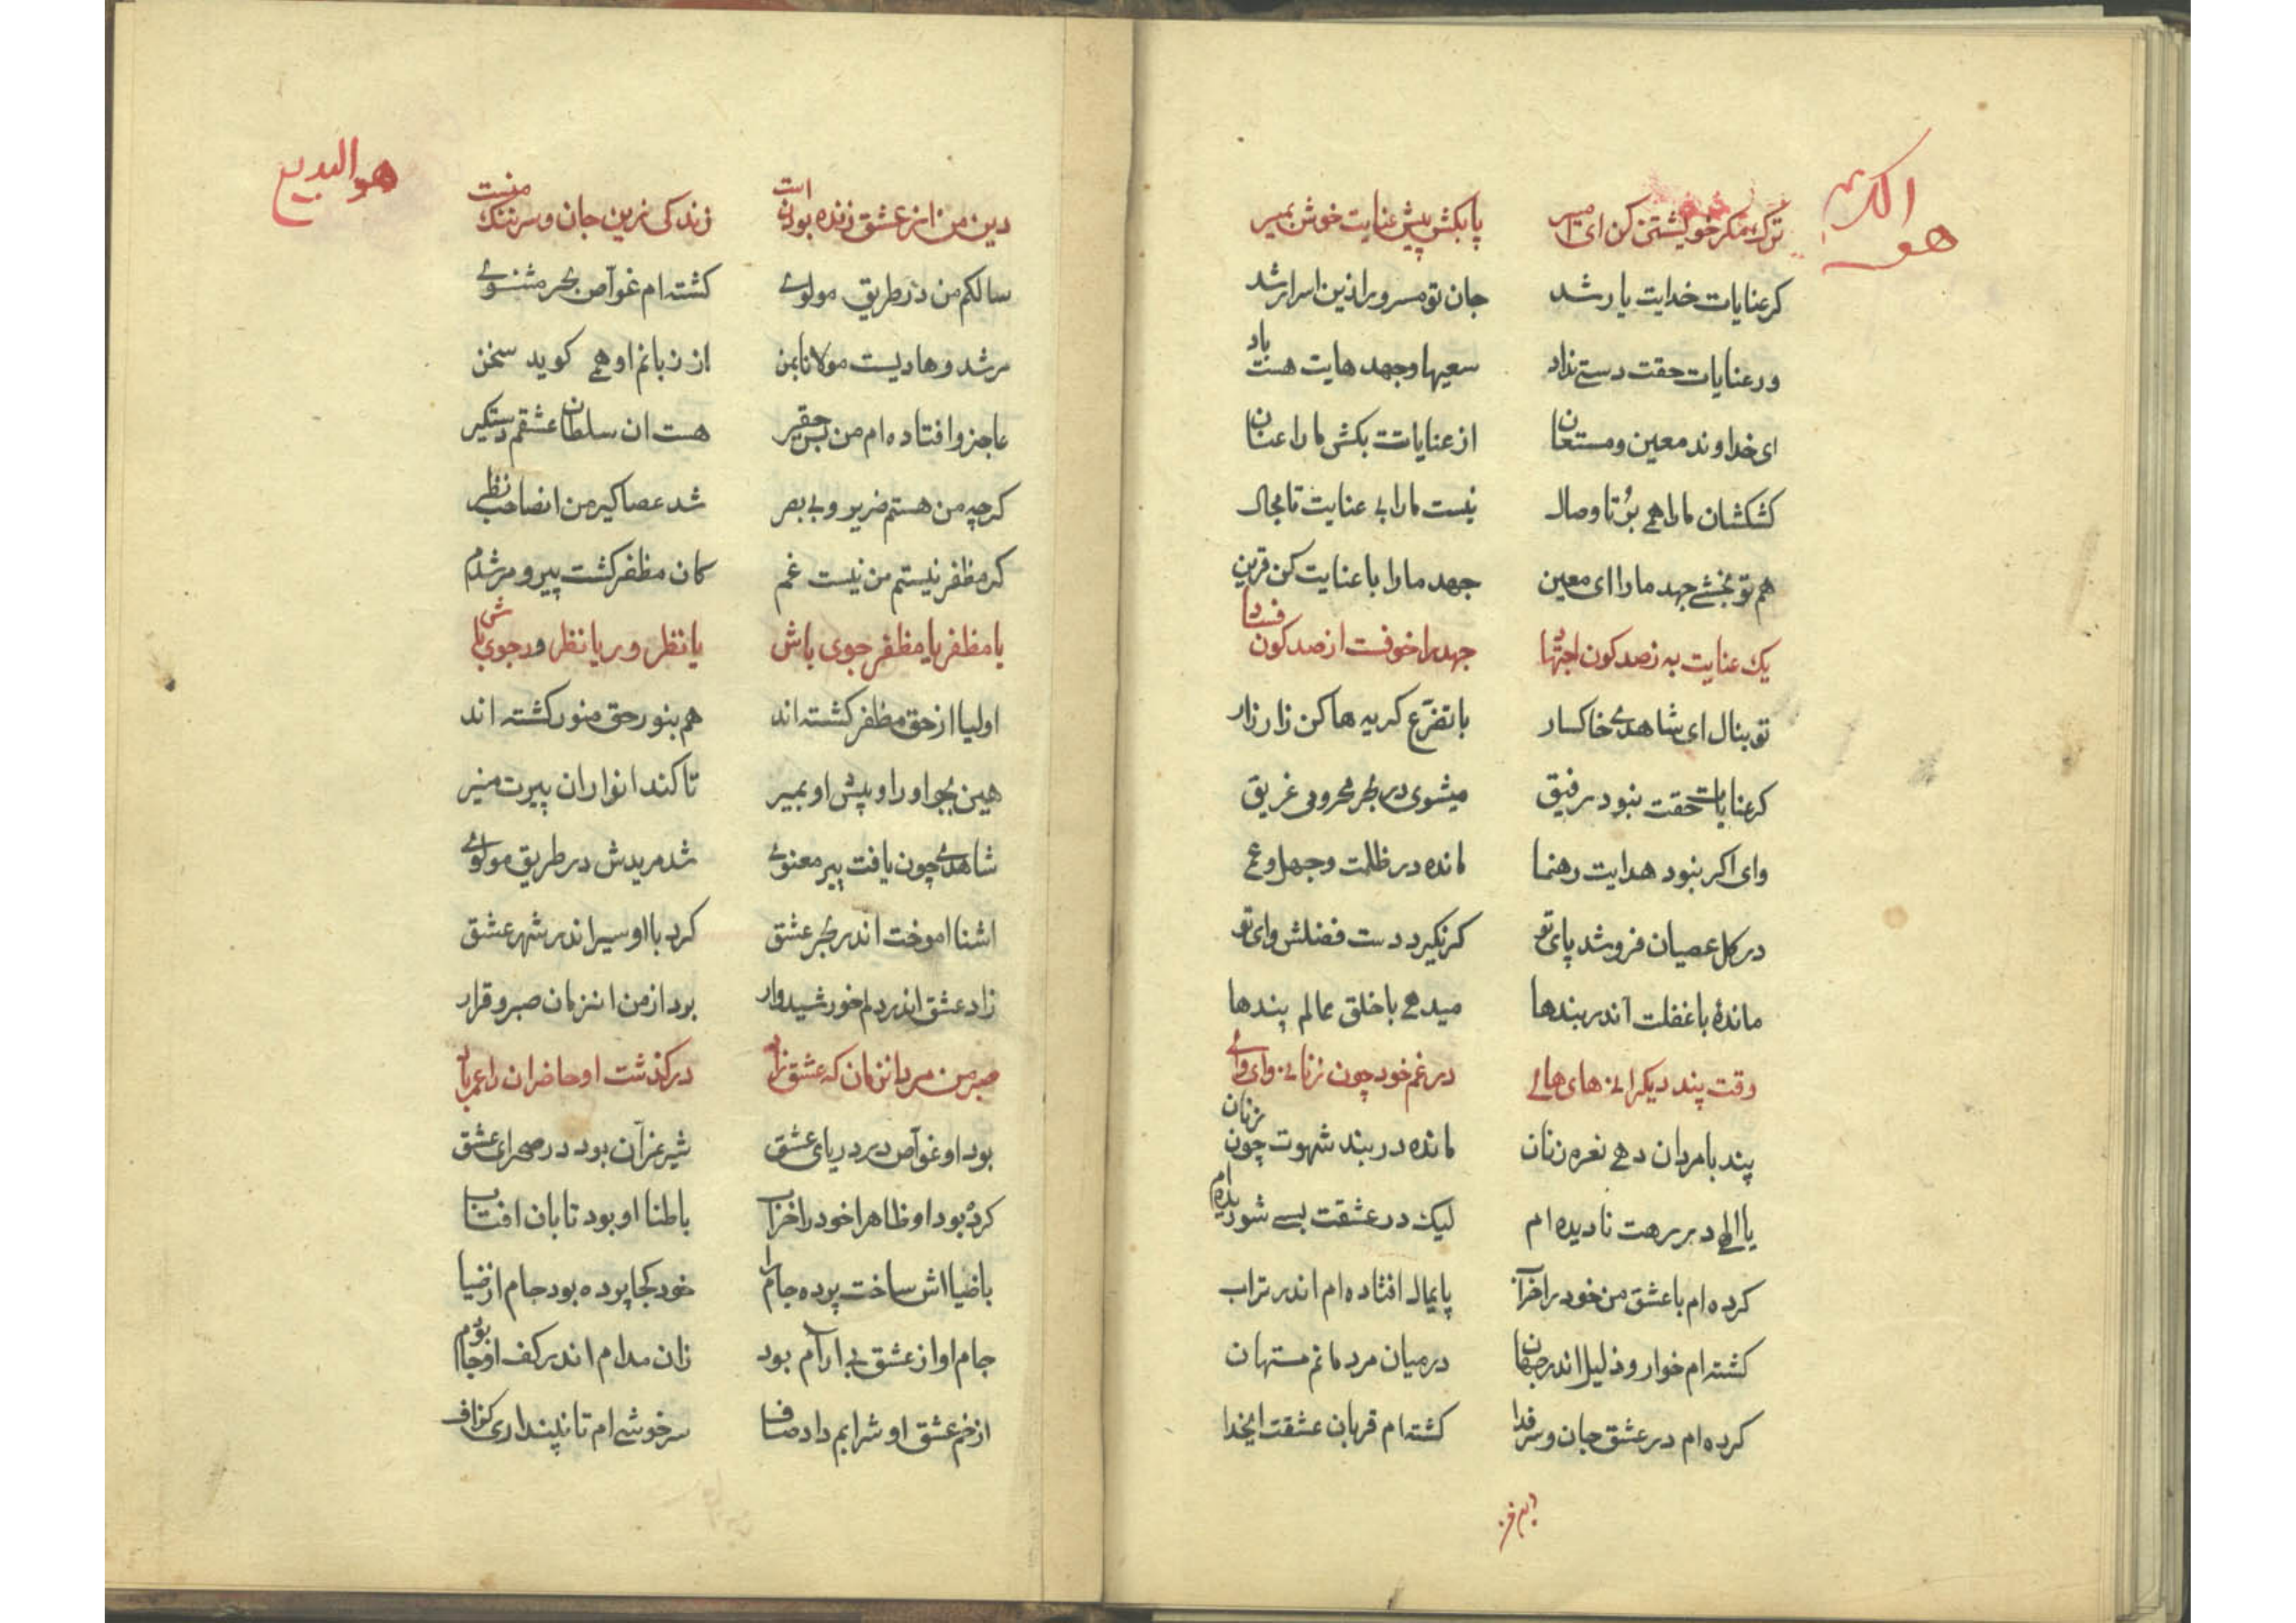 هو الكريم
ترك مكر خويشتن كن اى امير پا بكش پيش عنايت خوش بمير
كر عنايات خدايت يار شد جان تو مسرور ازين اسرار شد
ور عنايات حقت دستى نداد سعيها و جهد هايت هست باد
اى خداوند معين و مستعان از عناياتت بكش ما را عنان
كشكشان ما را همى بر تا وصال نيست ما را بى عنايت تا مجال
هم تو بخشى جهد ما را اى معين جهد ما را با عنايت كن قرين
يك عنايت به ز صد كون اجتهاد جهد را خوفست از صد كون فساد
تو بنال اى شاهدى خاكسار با تضرع كريه ها كن زار زار
كر عنايات حقت نبود رفيق ميشوى در بحر محرومى غريق
واى اكر نبود هدايت رهنما مانده در ظلمت و جهل و عمى
در كل عصيان فرو شد پاى تو كر نكيرد دست فضلش واى تو
ماندهٔ با غفلت اندر بندها ميدهى با خلق عالم پندها
وقت پند ديكرانى هاى هاى در غم خود چون زنانى واى واى
پند با مردان دهى نعره زنان مانده در بند شهوت چون زنان
يا الهى در رهت ناديده ام ليك در عشقت بسى شوريده ام
كرده ام با عشق من خود را خراب پايمال افتاده ام اندر تراب
كشته ام خوار و ذليل اندر جهان در ميان مردمانم مستهان
كرده ام در عشق جان و سر فدا كشته ام قربان عشقت ايخدا
هو البديع
دين من از عشق زنده بودن است زندكى زين جان و سر ننك منست
سالكم من در طريق مولوى كشته ام غواص بحر مثنوى
مرشد و هاديست مولانا بمن از زبانم او همى كويد سخن
عاجز و افتاده ام من بس حقير هست ان سلطان عشقم دستكير
كرچه من هستم ضرير و بى بصر شد عصا كير من ان صاحب نظر
كر مظفر نيستم من نيست غم كان مظفر كشت پير و مرشدم
يا مظفر يا مظفر جوى باش يا نظر ور يا نظر ور جوى باش
اوليا از حق مظفر كشته اند هم بنور حق منور كشته اند
هين بجو او را و پيش او بمير تا كند انوار ان پيرت منير
شاهدى چون يافت پير معنوى شد مريدش در طريق مولوى
اشنا اموخت اندر بحر عشق كرد با او سير اندر شهر عشق
زاد عشق اندر دلم خورشيدوار برد از من انزمان صبر و قرار
صبر من مرد انزمان كه عشق زاد دركذشت او حاضران را عمر باد
بود او غواص در درياى عشق شير غران بود در صحراى عشق
كرده بود او ظاهرا خود را خراب باطنا او بود تابان افتاب
با ضيااش ساخت پرده جام را خود كجا پرده بود جام از ضيا
جام او از عشق بى ارام بود زان مدام اندر كف او جام بود
از خم عشق او شرابم داد صاف سرخوشى ام تا نپندارى كزاف